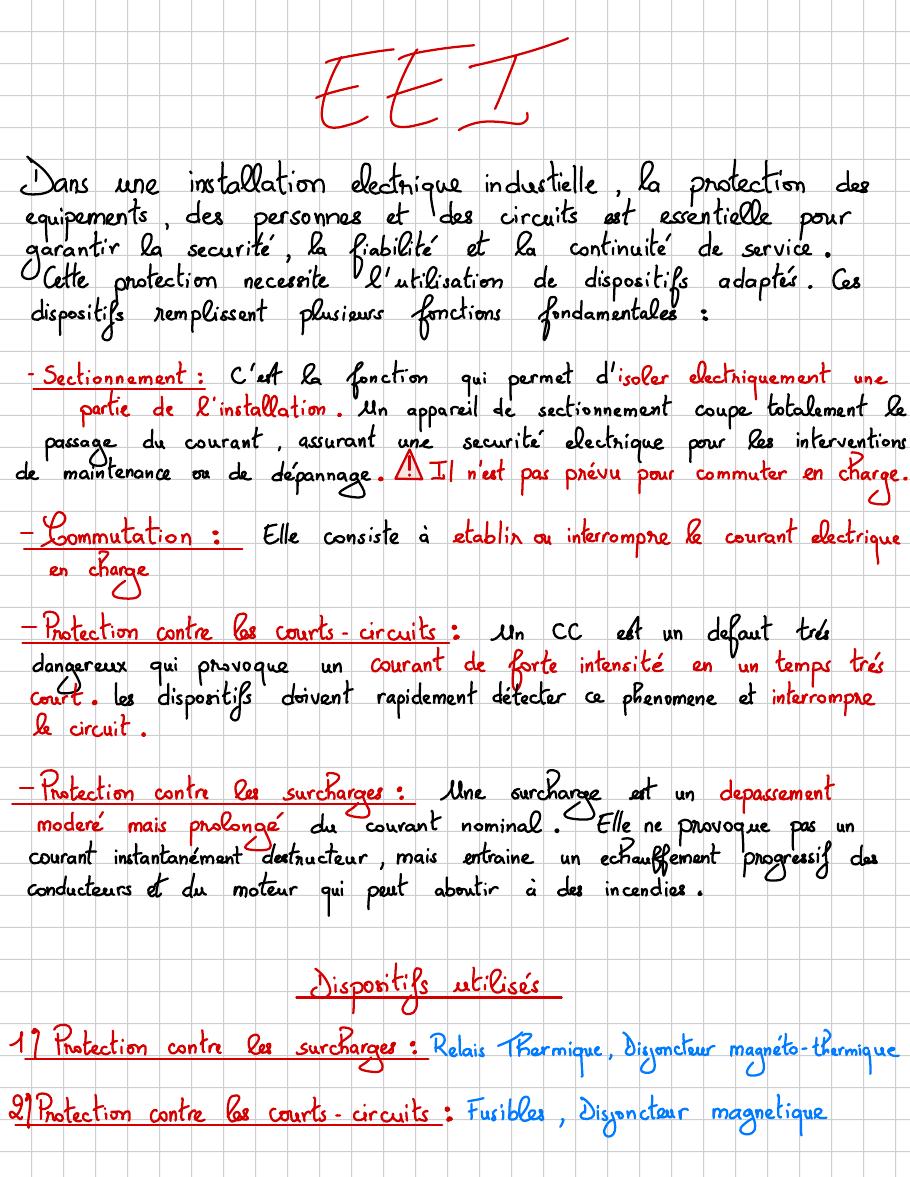 EEI
Dans une installation electrique industielle, la protection des
equipements, des personnes et des circuits est essentielle pour
garantir la securité, la fiabilité et la continuité de service.
Cette protection necessite l'utilisation de dispositifs adaptés. Ces
dispositifs remplissent plusieurs fonctions fondamentales :
- Sectionnement : C'est la fonction qui permet d'isoler electriquement une
partie de l'installation. Un appareil de sectionnement coupe totalement le
passage du courant, assurant une securité electrique pour les interventions
de maintenance ou de dépannage. ⚠ Il n'est pas prévu pour commuter en charge.
- Commutation : Elle consiste à etablir ou interrompre le courant electrique
en charge
- Protection contre les courts-circuits : Un CC est un defaut trés
dangereux qui provoque un courant de forte intensité en un temps trés
court. les dispositifs doivent rapidement détecter ce phenomene et interrompre
le circuit.
- Protection contre les surcharges : Une surcharge est un depassement
moderé mais prolongé du courant nominal. Elle ne provoque pas un
courant instantanément destructeur, mais entraine un echauffement progressif des
conducteurs et du moteur qui peut aboutir à des incendies.
Dispositifs utilisés
1) Protection contre les surcharges : Relais Thermique, Disjoncteur magnéto-thermique
2) Protection contre les courts-circuits : Fusibles, Disjoncteur magnetique